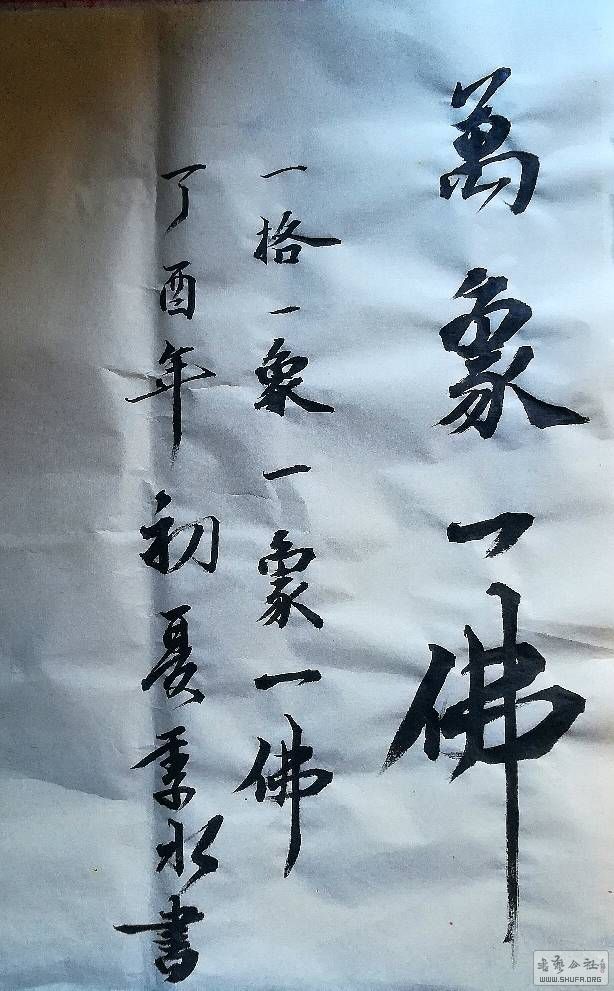 萬象一佛
一格一象一象一佛
丁酉年初夏季水書
書藝公社
WWW.SHUFA.ORG